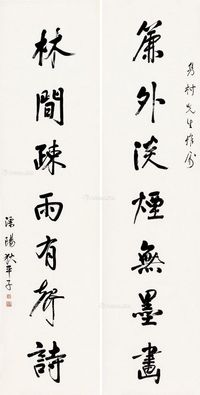 秀村先生雅屬
簾外淡煙無墨畫
林間疎雨有聲詩
溧陽狄平子